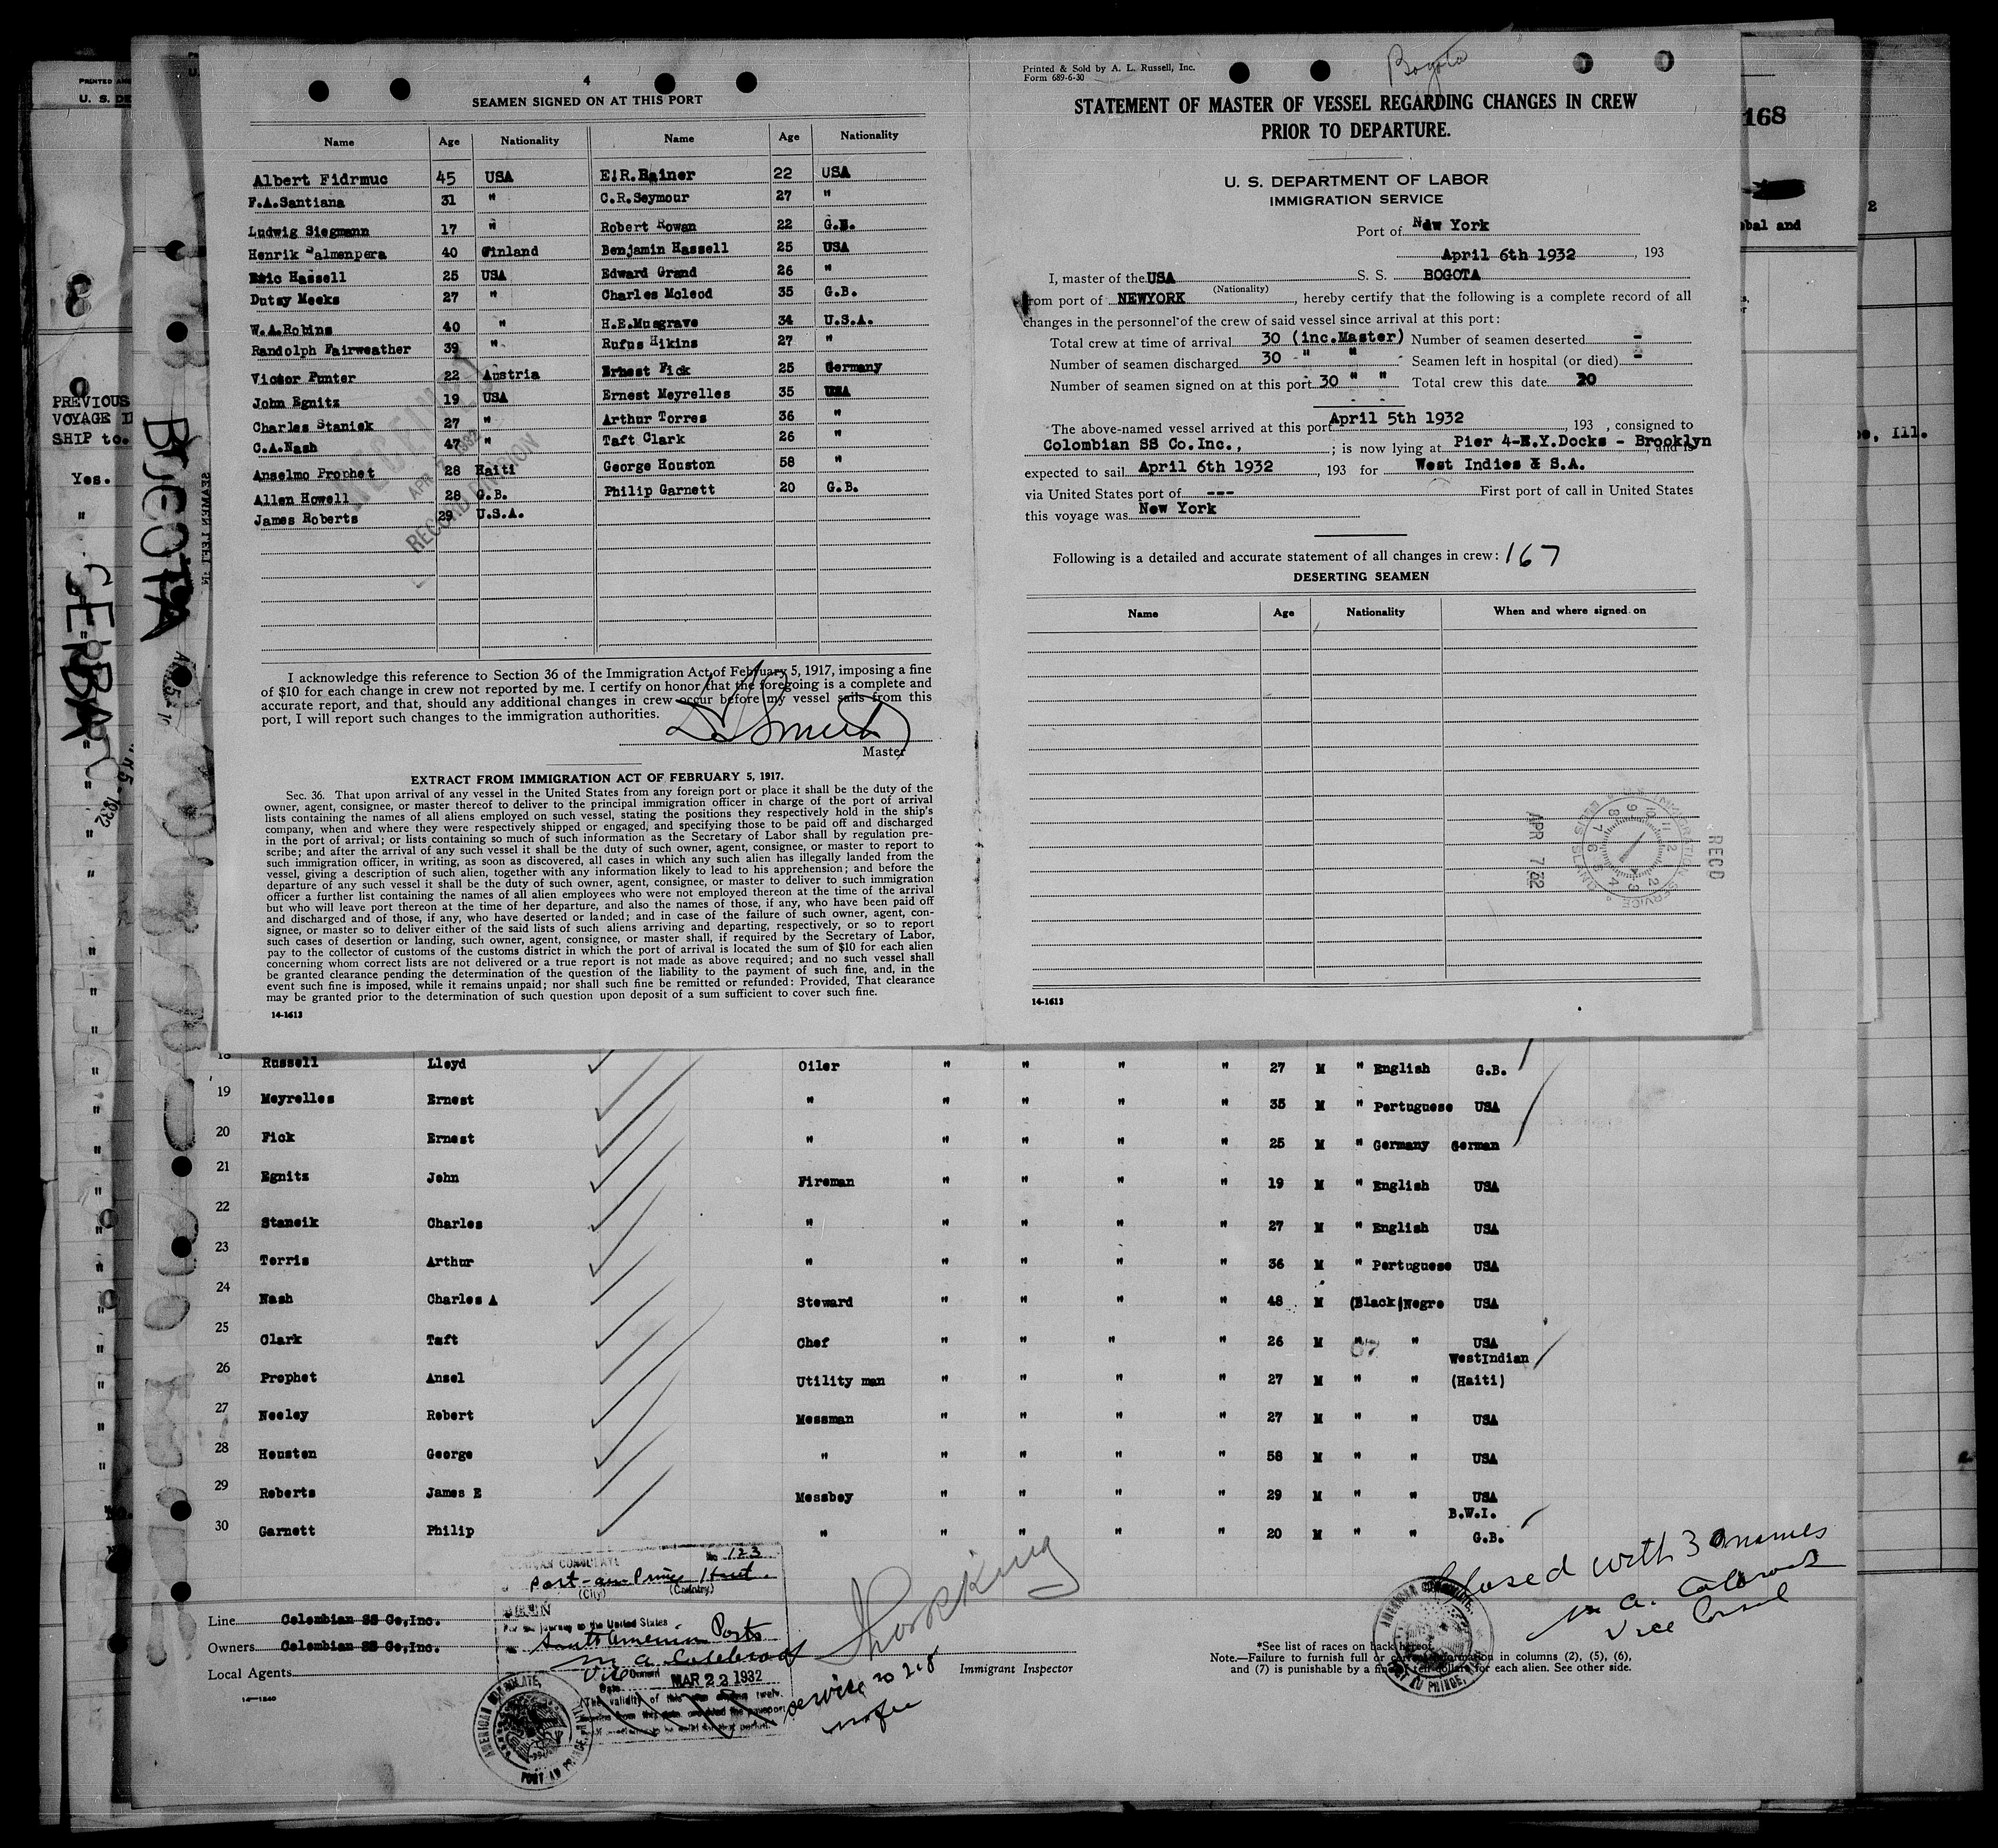 4
SEAMEN SIGNED ON AT THIS PORT
Name Age Nationality Name Age Nationality
Albert Fidrmuc 45 USA E.R.Rainer 22 USA
F.A.Santiana 31 " C.R.Seymour 27 "
Ludwig Siegmann 17 " Robert Rowan 22 G.B.
Henrik Salmenpera 40 Finland Benjamin Hassell 25 USA
Eric Hassell 25 USA Edward Grand 26 "
Dutsy Meeks 27 " Charles Mcleod 35 G.B.
W.A.Robins 40 " H.E.Musgrave 34 U.S.A.
Randolph Fairweather 39 " Rufus Hikins 27 "
Victor Punter 22 Austria Ernest Fick 25 Germany
John Egnitz 19 USA Ernest Meyrelles 35 USA
Charles Staniek 27 " Arthur Torres 36 "
C.A.Nash 47 " Taft Clark 26 "
Anselmo Prophet 28 Haiti George Houston 58 "
Allen Howell 28 G.B. Philip Garnett 20 G.B.
James Roberts 29 U.S.A.
RECEIVED
APR 1932
RECORD DIVISION
I acknowledge this reference to Section 36 of the Immigration Act of February 5, 1917, imposing a fine
of $10 for each change in crew not reported by me. I certify on honor that the foregoing is a complete and
accurate report, and that, should any additional changes in crew occur before my vessel sails from this
port, I will report such changes to the immigration authorities.
Master
EXTRACT FROM IMMIGRATION ACT OF FEBRUARY 5, 1917.
Sec. 36. That upon arrival of any vessel in the United States from any foreign port or place it shall be the duty of the
owner, agent, consignee, or master thereof to deliver to the principal immigration officer in charge of the port of arrival
lists containing the names of all aliens employed on such vessel, stating the positions they respectively hold in the ship's
company, when and where they were respectively shipped or engaged, and specifying those to be paid off and discharged
in the port of arrival; or lists containing so much of such information as the Secretary of Labor shall by regulation pre-
scribe; and after the arrival of any such vessel it shall be the duty of such owner, agent, consignee, or master to report to
such immigration officer, in writing, as soon as discovered, all cases in which any such alien has illegally landed from the
vessel, giving a description of such alien, together with any information likely to lead to his apprehension; and before the
departure of any such vessel it shall be the duty of such owner, agent, consignee, or master to deliver to such immigration
officer a further list containing the names of all alien employees who were not employed thereon at the time of the arrival
but who will leave port thereon at the time of her departure, and also the names of those, if any, who have been paid off
and discharged and of those, if any, who have deserted or landed; and in case of the failure of such owner, agent, con-
signee, or master so to deliver either of the said lists of such aliens arriving and departing, respectively, or so to report
such cases of desertion or landing, such owner, agent, consignee, or master shall, if required by the Secretary of Labor,
pay to the collector of customs of the customs district in which the port of arrival is located the sum of $10 for each alien
concerning whom correct lists are not delivered or a true report is not made as above required; and no such vessel shall
be granted clearance pending the determination of the question of the liability to the payment of such fine, and, in the
event such fine is imposed, while it remains unpaid; nor shall such fine be remitted or refunded: Provided, That clearance
may be granted prior to the determination of such question upon deposit of a sum sufficient to cover such fine.
14-1613
Printed & Sold by A. L. Russell, Inc.
Form 689-6-30
Bogota
STATEMENT OF MASTER OF VESSEL REGARDING CHANGES IN CREW
PRIOR TO DEPARTURE.
U. S. DEPARTMENT OF LABOR
IMMIGRATION SERVICE
Port of New York
April 6th 1932, 193
I, master of the USA S. S. BOGOTA
(Nationality)
from port of NEWYORK, hereby certify that the following is a complete record of all
changes in the personnel of the crew of said vessel since arrival at this port:
Total crew at time of arrival 30 (inc.Master) Number of seamen deserted -
Number of seamen discharged 30 " " Seamen left in hospital (or died) -
Number of seamen signed on at this port 30 " " Total crew this date 30
The above-named vessel arrived at this port April 5th 1932, 193 , consigned to
Colombian SS Co.Inc., ; is now lying at Pier 4-N.Y.Docks - Brooklyn, and is
expected to sail April 6th 1932, 193 for West Indies & S.A.
via United States port of --- First port of call in United States
this voyage was New York
Following is a detailed and accurate statement of all changes in crew: 167
DESERTING SEAMEN
Name Age Nationality When and where signed on
REC'D
APR 7 32
14-1613
168
PREVIOUS
VOYAGE
SHIP to.
Yes.
BOGOTA
CERBA
18 Russell Lloyd Oiler " " " " 27 M " English G.B.
19 Meyrelles Ernest " " " " " 35 M " Portuguese USA
20 Fick Ernest " " " " " 25 M " Germany German
21 Egnitz John Fireman " " " " 19 M " English USA
22 Staneik Charles " " " " " 27 M " English USA
23 Terris Arthur " " " " " 36 M " Portuguese USA
24 Nash Charles A Steward " " " " 48 M (Black)Negro USA
25 Clark Taft Chef " " " " 26 M " " USA
26 Prophet Ansel Utility man " " " " 27 M " " WestIndian (Haiti)
27 Neeley Robert Messman " " " " 27 M " " USA
28 Housten George " " " " " 58 M " " USA
29 Roberts James E Messboy " " " " 29 M " " USA
30 Garnett Philip " " " " " 20 M " " B.W.I. G.B.
Line Colombian SS Co,Inc.
Owners Colombian SS Co,Inc.
Local Agents
14-1240
No 123
Port-au-Prince Haiti
(City) (Country)
For the journey to the United States
South American Ports
MAR 22 1932
AMERICAN CONSULATE, PORT AU PRINCE, HAITI
Immigrant Inspector
Closed with 30 names
Vice Consul
*See list of races on back hereof.
Note.—Failure to furnish full or correct information in columns (2), (5), (6),
and (7) is punishable by a fine of ten dollars for each alien. See other side.